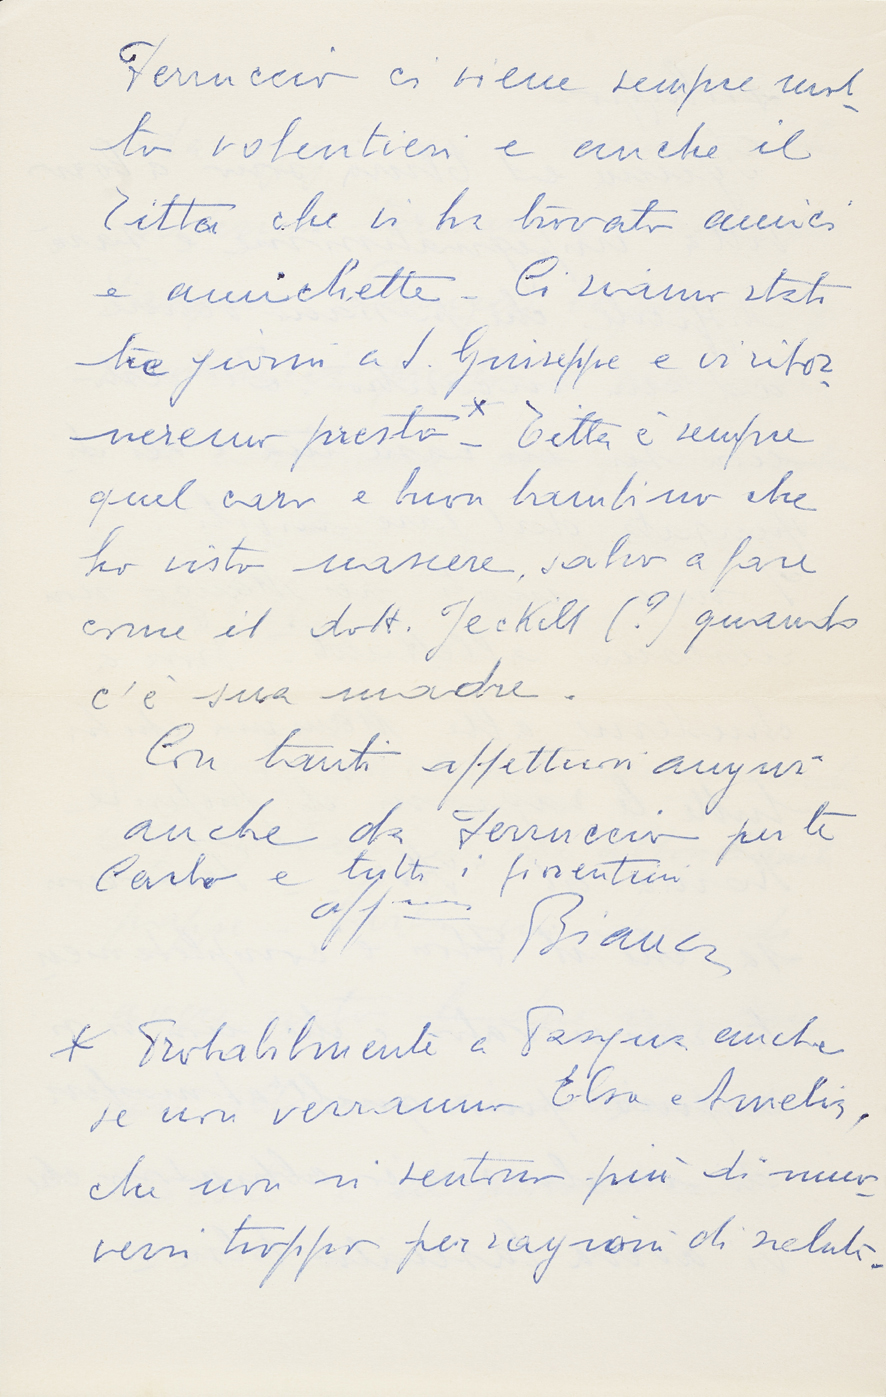 Ferruccio ci viene sempre mol-
to volentieri e anche il
Titta che vi ha trovato amici
e amichette - Ci siamo stati
tre giorni a S. Giuseppe e vi ritor-
neremo presto * - Titta è sempre
quel caro e buon bambino che
ho visto nascere, salvo a fare
come il dott. Jeckill (?) quando
c'è sua madre.
Con tanti affettuosi auguri
anche da Ferruccio per te
Carlo e tutti i fiorentini
aff
Bianca
* Probabilmente a Pasqua anche
se non verranno Elsa e Amelia,
che non si sentono più di muo-
versi troppo per ragioni di salute.